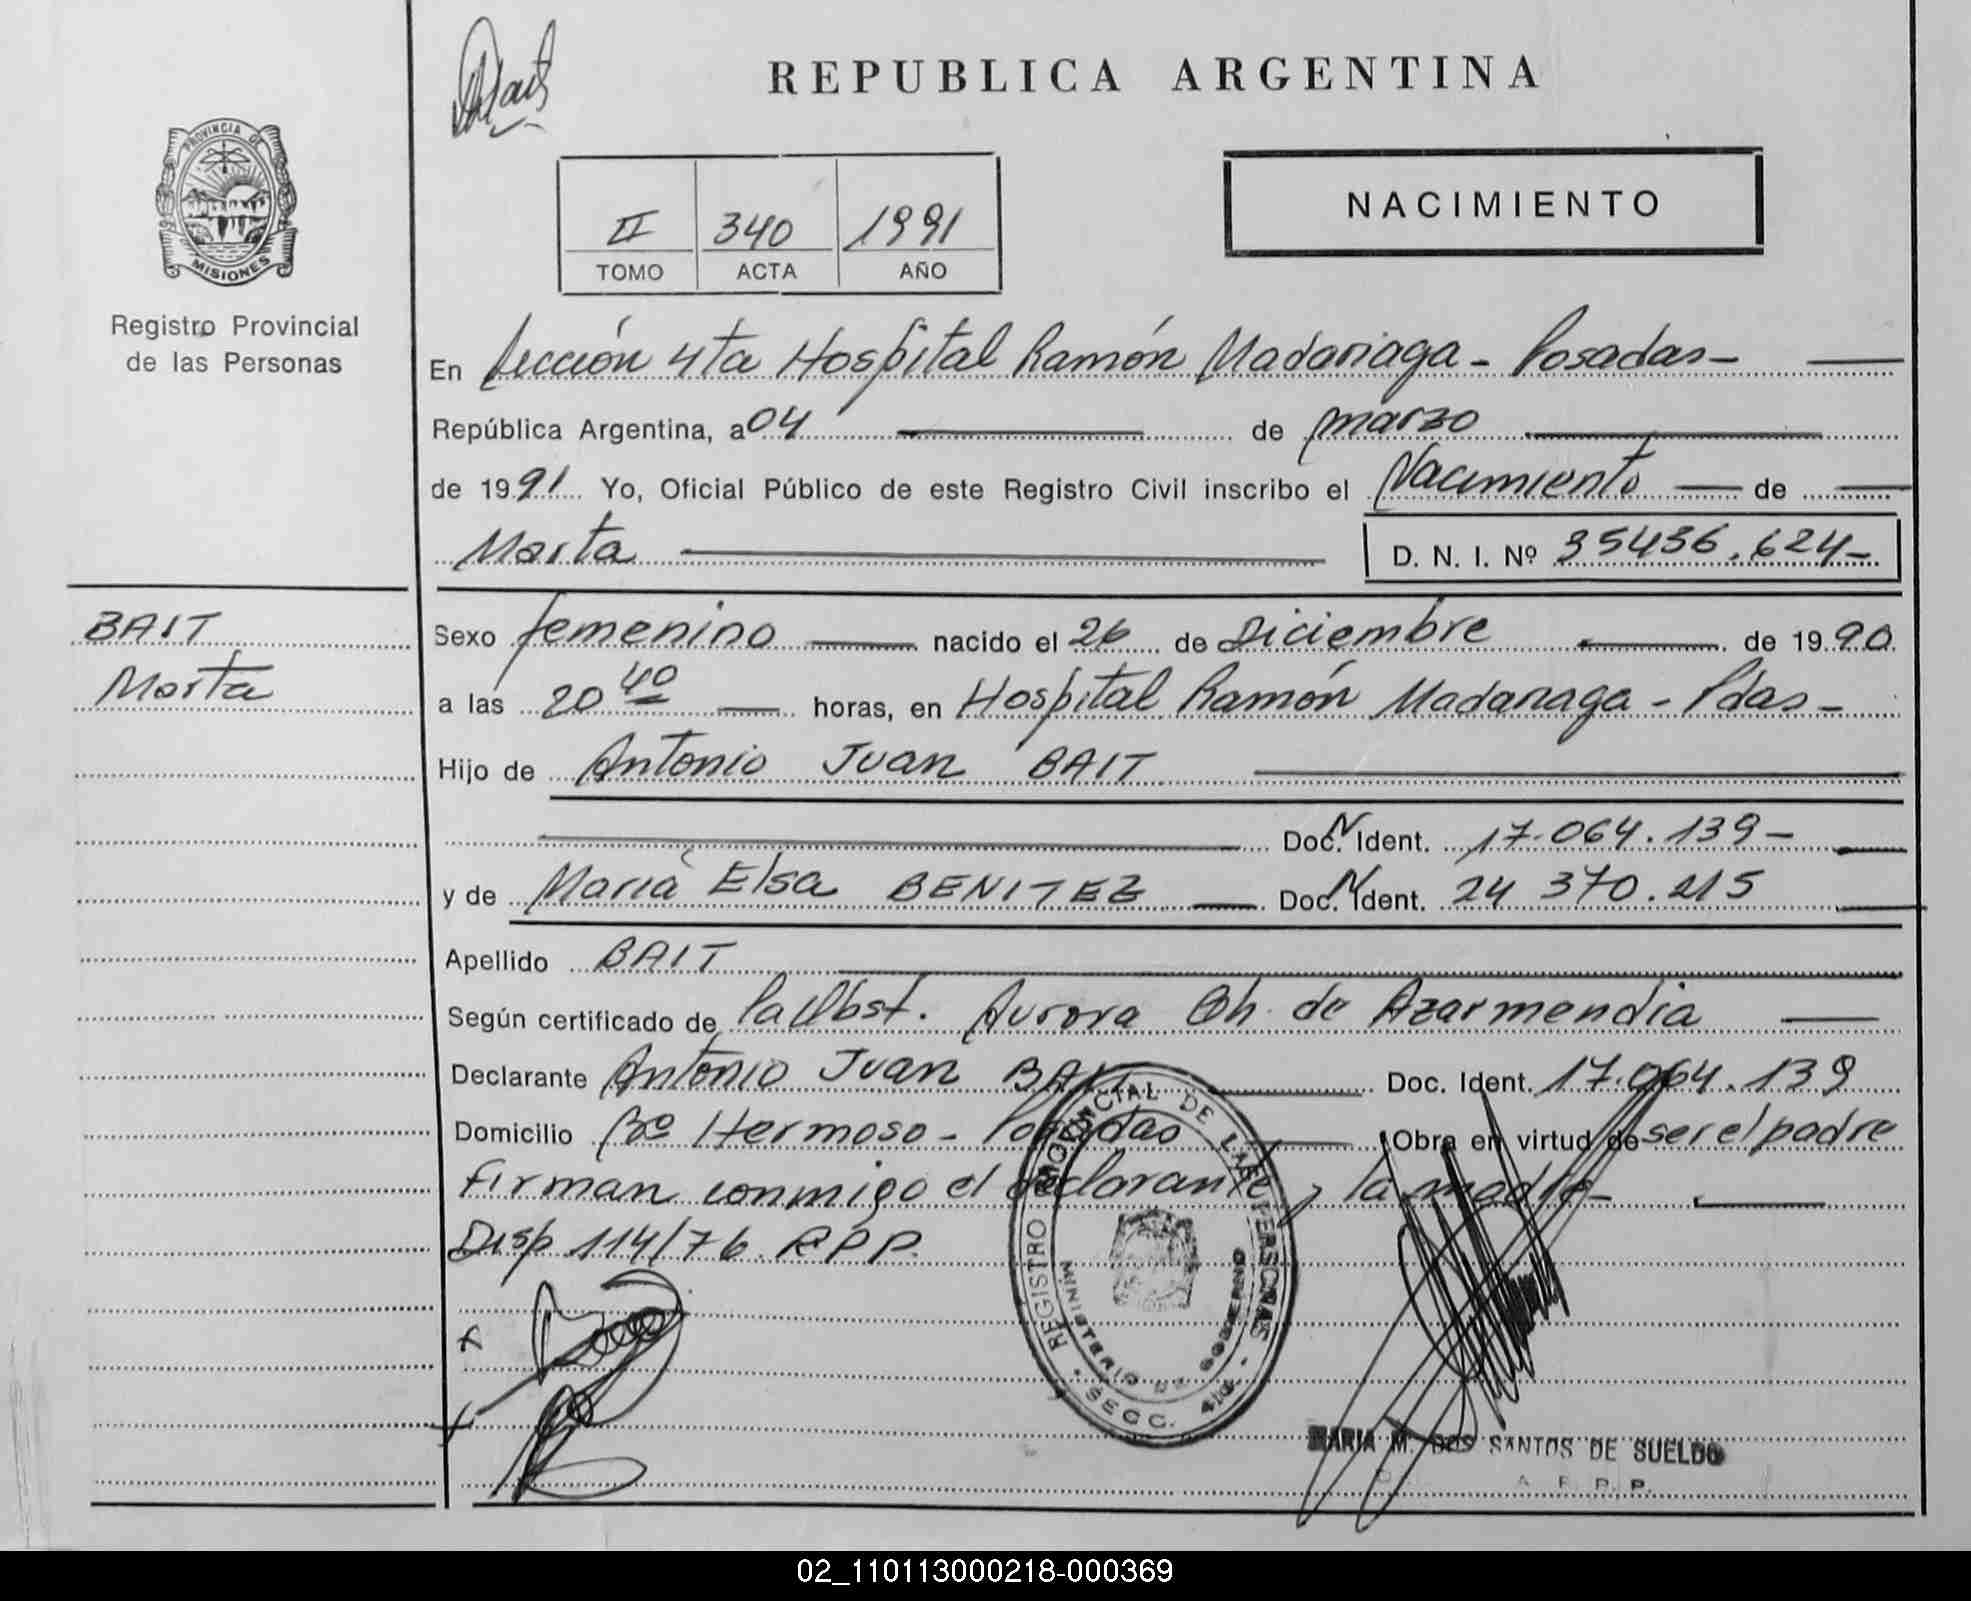 REPUBLICA ARGENTINA
PROVINCIA DE
MISIONES
Registro Provincial
de las Personas
II 340 1991
TOMO ACTA AÑO
NACIMIENTO
En Sección 4ta Hospital Ramón Madariaga - Posadas -
República Argentina, a 04 de marzo
de 1991 Yo, Oficial Público de este Registro Civil inscribo el Nacimiento de
Marta D. N. I. Nº 35436.624-
BAIT
Marta
Sexo femenino nacido el 26 de Diciembre de 1990
a las 20 40 horas, en Hospital Ramón Madariaga - Pdas -
Hijo de Antonio Juan BAIT
Doc. N Ident. 17.064.139-
y de María Elsa BENITEZ Doc. N Ident. 24 370.215
Apellido BAIT
Según certificado de la Obst. Aurora Ch. de Azarmendia
Declarante Antonio Juan BAIT Doc. Ident. 17.064.139
Domicilio Bº Hermoso - Posadas Obra en virtud de ser el padre
Firman conmigo el declarante y la madre-
Disp 114/76. R.P.P.
REGISTRO PROVINCIAL DE LAS PERSONAS
MINISTERIO DE GOBIERNO
SECC. 4ta.
MARIA M. DOS SANTOS DE SUELDO
R. P. P.
02_110113000218-000369